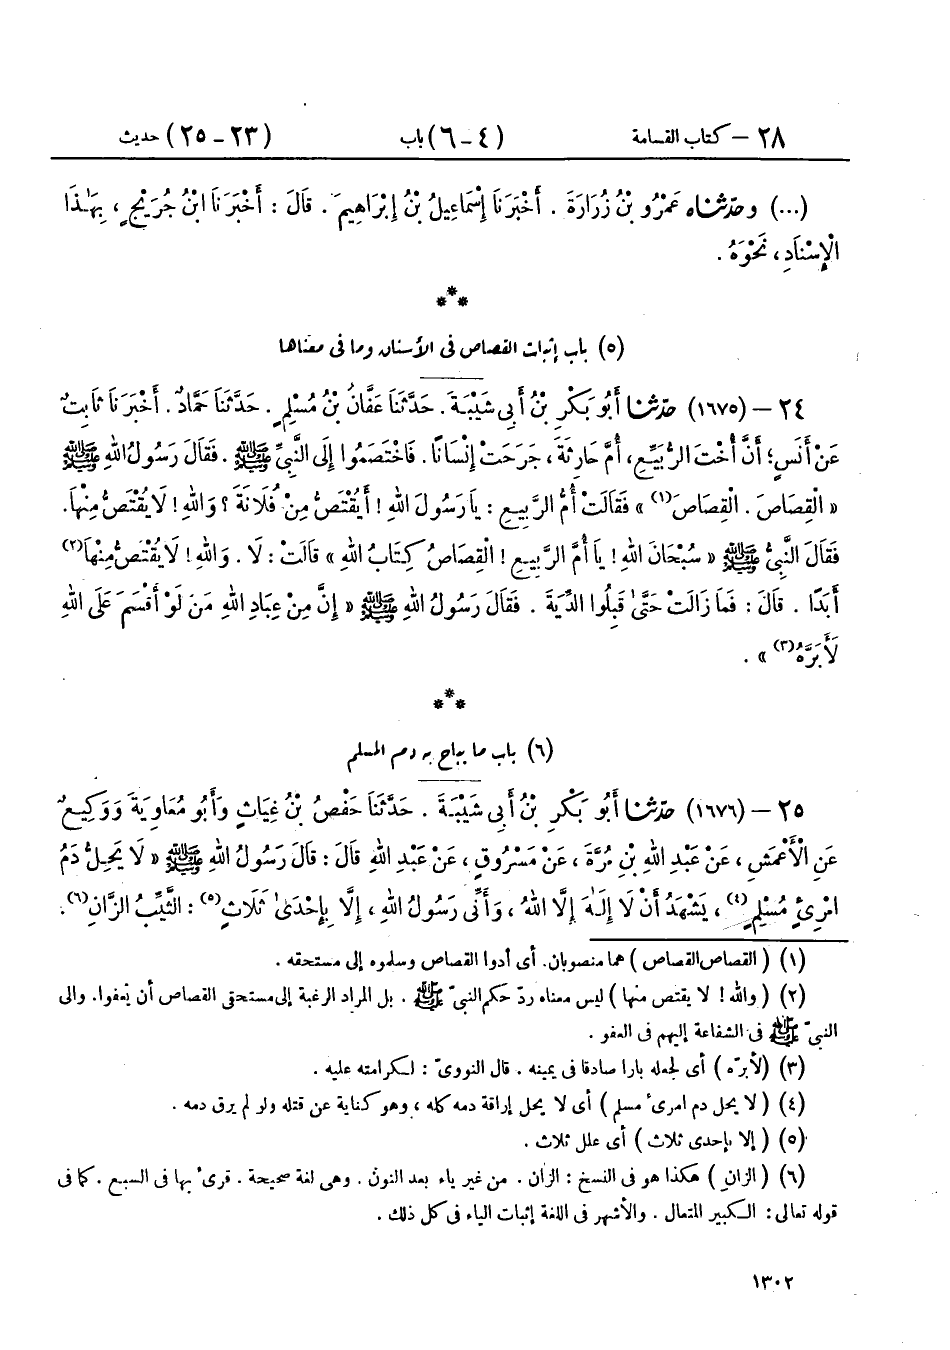 ٢٨ – كتاب القسامة (٤ – ٦) باب (٢٣ – ٢٥) حديث
(...) وحدّثناه عَمْرُو بْنُ زُرَارَةَ . أَخْبَرَنَا إِسْمَاعِيلُ بْنُ إِبْرَاهِيمَ . قَالَ : أَخْبَرَنَا ابْنُ جُرَيْجٍ ، بِهَٰذَا
الْإِسْنَادِ ، نَحْوَهُ .
***
(٥) باب إثبات القصاص فى الأسنان وما فى معناها
٢٤ – (١٦٧٥) حدّثنا أَبُو بَكْرِ بْنُ أَبِي شَيْبَةَ . حَدَّثَنَا عَفَّانُ بْنُ مُسْلِمٍ . حَدَّثَنَا حَمَّادٌ . أَخْبَرَنَا ثَابِتٌ
عَنْ أَنَسٍ ؛ أَنَّ أُخْتَ الرُّبَيِّعِ ، أُمَّ حَارِثَةَ ، جَرَحَتْ إِنْسَانًا . فَاخْتَصَمُوا إِلَى النَّبِيِّ ﷺ . فَقَالَ رَسُولُ اللهِ ﷺ
« الْقِصَاصَ . الْقِصَاصَ(١) » فَقَالَتْ أُمُّ الرَّبِيعِ : يَا رَسُولَ اللهِ ! أَيُقْتَصُّ مِنْ فُلَانَةَ ؟ وَاللهِ ! لَا يُقْتَصُّ مِنْهَا .
فَقَالَ النَّبِيُّ ﷺ « سُبْحَانَ اللهِ ! يَا أُمَّ الرَّبِيعِ ! الْقِصَاصُ كِتَابُ اللهِ » قَالَتْ : لَا . وَاللهِ ! لَا يُقْتَصُّ مِنْهَا(٢)
أَبَدًا . قَالَ : فَمَا زَالَتْ حَتَّىٰ قَبِلُوا الدِّيَةَ . فَقَالَ رَسُولُ اللهِ ﷺ « إِنَّ مِنْ عِبَادِ اللهِ مَنْ لَوْ أَقْسَمَ عَلَى اللهِ
لَأَبَرَّهُ(٣) » .
***
(٦) باب ما يباح به دم المسلم
٢٥ – (١٦٧٦) حدّثنا أَبُو بَكْرِ بْنُ أَبِي شَيْبَةَ . حَدَّثَنَا حَفْصُ بْنُ غِيَاثٍ وَأَبُو مُعَاوِيَةَ وَوَكِيعٌ
عَنِ الْأَعْمَشِ ، عَنْ عَبْدِ اللهِ بْنِ مُرَّةَ ، عَنْ مَسْرُوقٍ ، عَنْ عَبْدِ اللهِ قَالَ : قَالَ رَسُولُ اللهِ ﷺ « لَا يَحِلُّ دَمُ
امْرِئٍ مُسْلِمٍ(٤) ، يَشْهَدُ أَنْ لَا إِلَٰهَ إِلَّا اللهُ ، وَأَنِّي رَسُولُ اللهِ ، إِلَّا بِإِحْدَىٰ ثَلَاثٍ(٥) : الثَّيِّبُ الزَّانِ(٦) .
(١) ( القصاص القصاص ) هما منصوبان. أى أدوا القصاص وسلموه إلى مستحقه .
(٢) ( والله ! لا يقتص منها ) ليس معناه ردّ حكم النبىّ ﷺ . بل المراد الرغبة إلى مستحقى القصاص أن يعفوا. والى
النبىّ ﷺ فى الشفاعة إليهم فى العفو .
(٣) ( لأبرّه ) أى لجعله بارا صادقا فى يمينه . قال النووىّ : لكرامته عليه .
(٤) ( لا يحل دم امرىء مسلم ) أى لا يحل إراقة دمه كله ، وهو كناية عن قتله ولو لم يرق دمه .
(٥) ( إلا بإحدى ثلاث ) أى علل ثلاث .
(٦) ( الزان ) هكذا هو فى النسخ : الزان . من غير ياء بعد النون . وهى لغة صحيحة . قرىء بها فى السبع . كما فى
قوله تعالى : الكبير المتعال . والأشهر فى اللغة إثبات الياء فى كل ذلك .
١٣٠٢